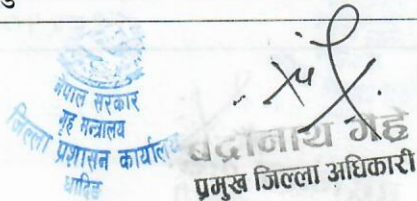 नेपाल सरकार
गृह मन्त्रालय
जिल्ला प्रशासन कार्यालय
धादिङ
बद्रीनाथ गैह्रे
प्रमुख जिल्ला अधिकारी